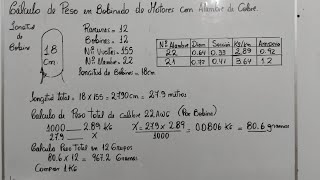 Cálculo de Peso em Bobinado de Motores com Alambre de Cobre.
Longitud
de
Bobina
18
cm
Ranuras = 12
Bobinas = 12
Nº Vueltas = 155
Nº Alambre = 22
longitud de Bobina = 18cm
Nº Alambre Diam Sección Kg/km Amperio
22 0.64 0.33 2.89 0.92
21 0.72 0.41 3.64 1.2
longitud Total = 18 x 155 = 2790 cm = 27.9 metros
Calculo de Peso Total de calibre 22 AWG (Por Bobina)
1000 — 2.89 KG X = 27.9 x 2.89 = 0.0806 Kg = 80.6 gramos
27.9 — X 1000
Calculo Peso Total en 12 Grupos
80.6 x 12 = 967.2 Gramos
Comprar 1 KG